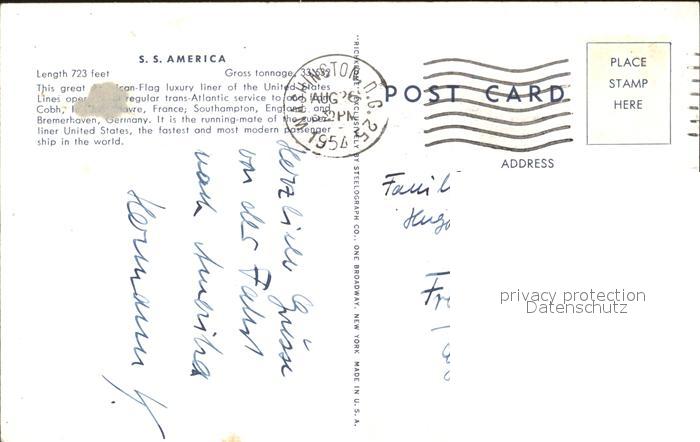 S. S. AMERICA
Length 723 feet Gross tonnage, 33,532
This great -Flag luxury liner of the United States
Lines regular trans-Atlantic service to and
Cobh, France; Southampton, England, and
Bremerhaven, Germany. It is the running-mate of the super
liner United States, the fastest and most modern passenger
ship in the world.
Herzliche Grüsse
von der Fahrt
nach Amerika
Hermann
EXCLUSIVELY BY STEELOGRAPH CO., ONE BROADWAY, NEW YORK MADE IN U.S.A.
WASHINGTON, D.C. 25
AUG
PM
1954
POST CARD
PLACE
STAMP
HERE
ADDRESS
Famil
Hugo
Fr
privacy protection
Datenschutz